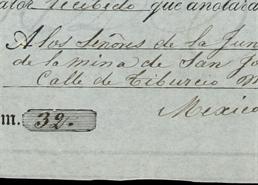 recibido que anotara
A los Señores de la Jun
de la mina de San Jo
Calle de Tiburcio
Mexico
m. 32.